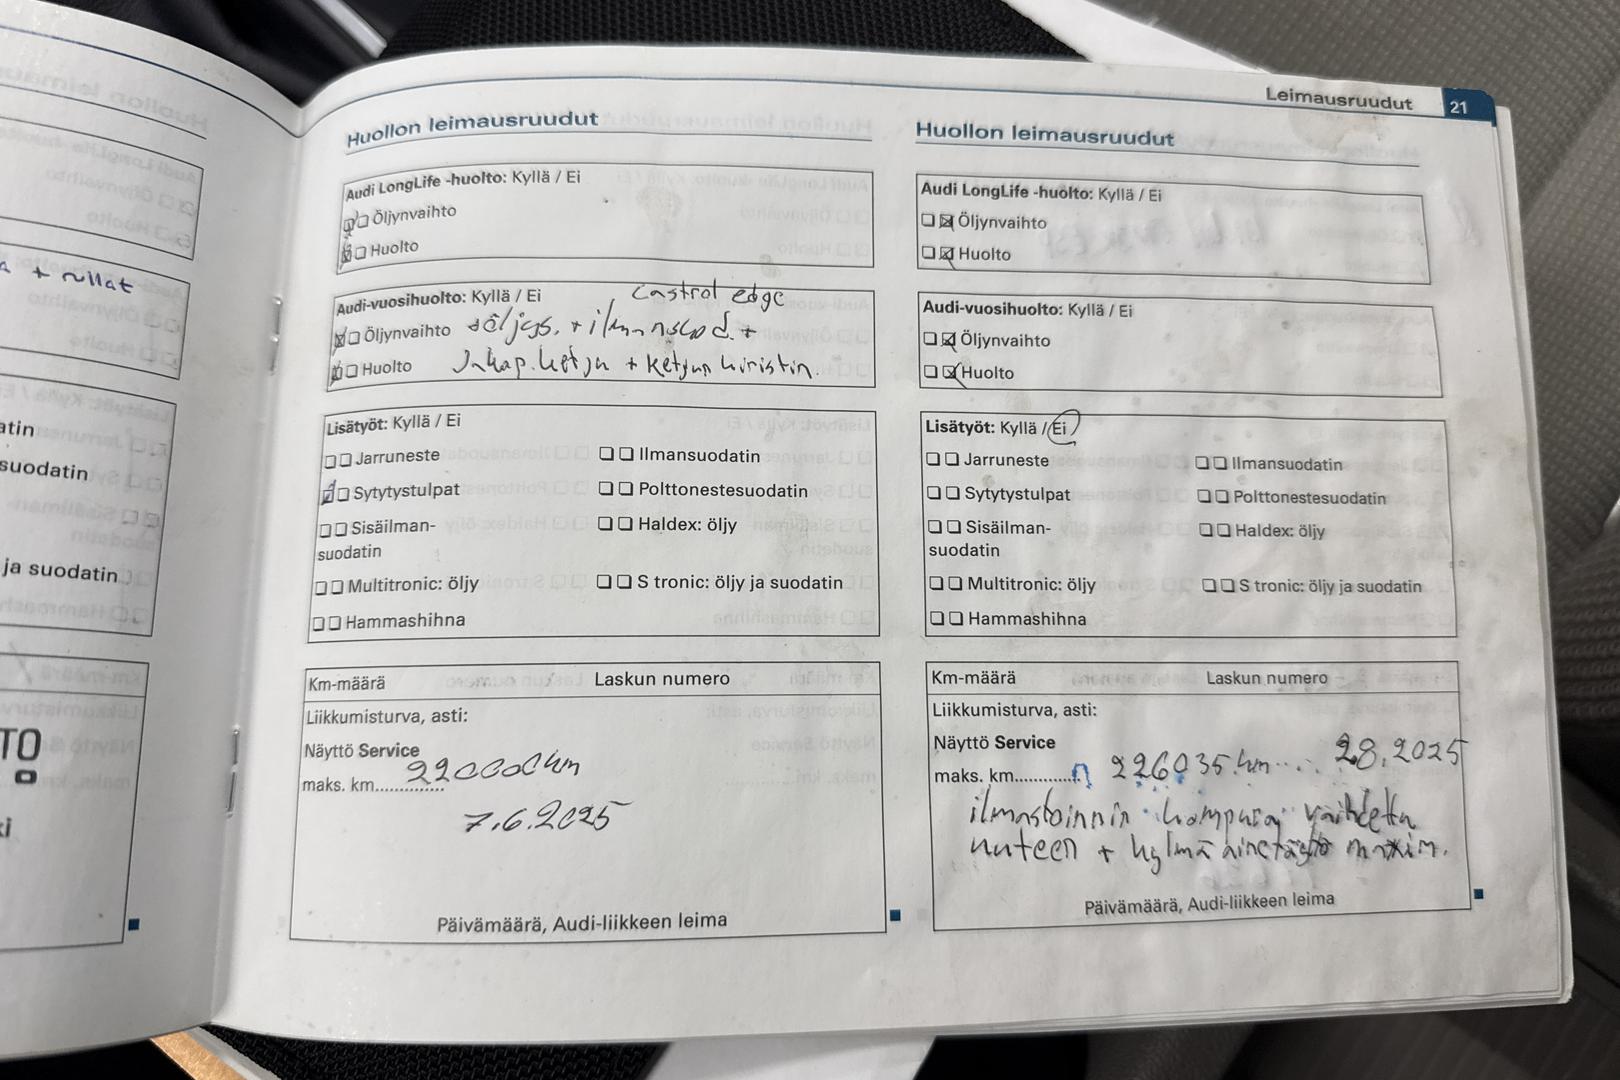 Leimausruudut 21
+ rullat
atin
suodatin
ja suodatin
TO
Huollon leimausruudut
Audi LongLife -huolto: Kyllä / Ei
Öljynvaihto
Huolto
Audi-vuosihuolto: Kyllä / Ei
castrol edge
Öljynvaihto + öljys. + ilmansuod. +
Huolto Jakop.ketju + ketjun kiristin.
Lisätyöt: Kyllä / Ei
Jarruneste
Ilmansuodatin
Sytytystulpat
Polttonestesuodatin
Sisäilman-
suodatin
Haldex: öljy
Multitronic: öljy
S tronic: öljy ja suodatin
Hammashihna
Km-määrä
Laskun numero
Liikkumisturva, asti:
Näyttö Service
maks. km.............. 220000 km
7.6.2025
Päivämäärä, Audi-liikkeen leima
Huollon leimausruudut
Audi LongLife -huolto: Kyllä / Ei
Öljynvaihto
Huolto
Audi-vuosihuolto: Kyllä / Ei
Öljynvaihto
Huolto
Lisätyöt: Kyllä / Ei
Jarruneste
Ilmansuodatin
Sytytystulpat
Polttonestesuodatin
Sisäilman-
suodatin
Haldex: öljy
Multitronic: öljy
S tronic: öljy ja suodatin
Hammashihna
Km-määrä
Laskun numero
Liikkumisturva, asti:
Näyttö Service
maks. km.............. 226035 km.... 2.8.2025
ilmastoinnin kompura vaihdettu
uuteen + kylmäainetäyttö maxim.
Päivämäärä, Audi-liikkeen leima